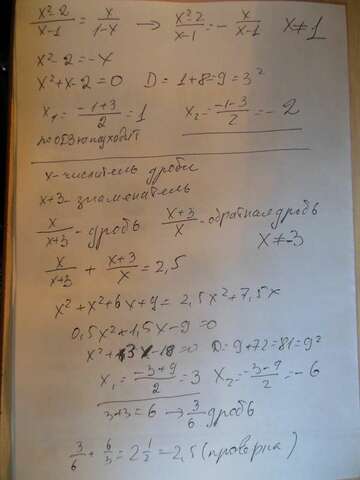 x²-2/x-1 = x/1-x → x²-2/x-1 = - x/x-1 x≠1
x²-2=-x
x²+x-2=0 D=1+8=9=3²
x₁=-1+3/2=1 x₂=-1-3/2=-2
по ОДЗ не подходит
x-числитель дроби
x+3-знаменатель
x/x+3-дробь x+3/x-обратная дробь
x≠-3
x/x+3 + x+3/x = 2,5
x²+x²+6x+9=2,5x²+7,5x
0,5x²+1,5x-9=0
x²+3x-18=0 D=9+72=81=9²
x₁=-3+9/2=3 x₂=-3-9/2=-6
3+3=6 → 3/6 дробь
3/6+6/3=2 1/2=2,5 (проверка)